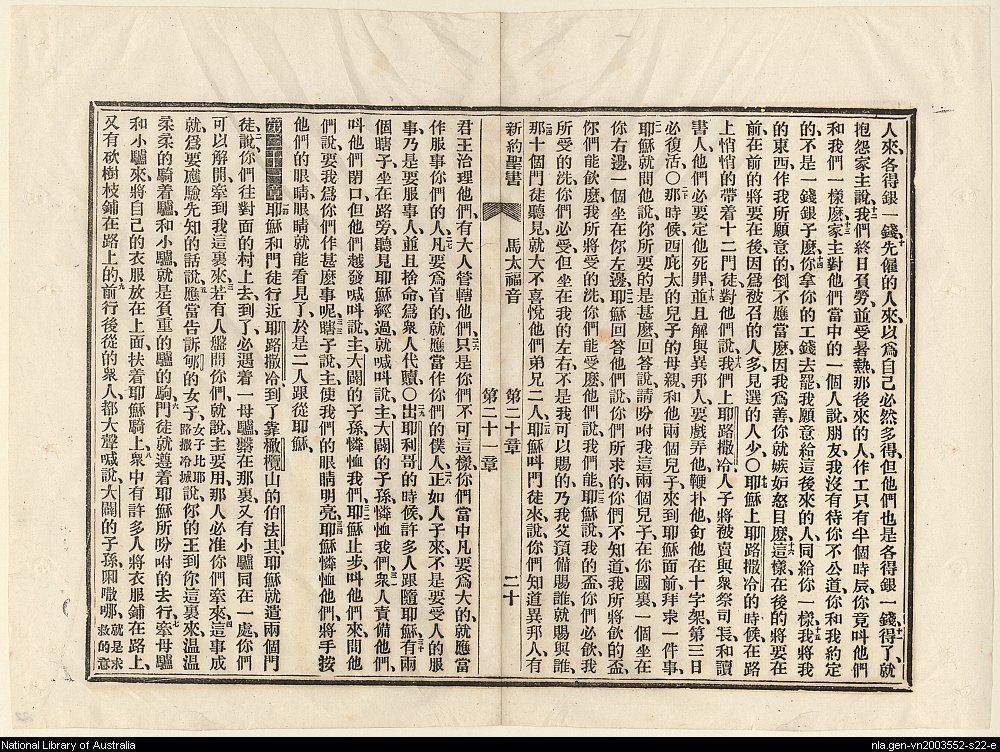 人來、各得銀一錢、十先僱的人來、以爲自己必然多得、但他們也是各得銀一錢、十一得了、就
抱怨家主說、十二我們終日負勞、並受暑熱、那後來的人、作工只有半個時辰、你竟叫他們
和我們一樣麼、十三家主對他們當中的一個人說、朋友、我沒有待你不公道、你和我約定
的、不是一錢銀子麼、十四你拿你的工錢去罷、我願意給這後來的人、同給你一樣、十五我將我
的東西、作我所願意的、倒不應當麼、因我爲善、你就嫉妒怒目麼、十六這樣、在後的將要在
前、在前的將要在後、因爲被召的人多、見選的人少、〇十七耶穌上耶路撒冷的時候、在路
上悄悄的帶着十二門徒、對他們說、十八我們上耶路撒冷、人子將被賣與衆祭司長、和讀
書人、他們必要定他死罪、十九並且解與異邦人、要戲弄他、鞭朴他、釘他在十字架、第三日
必復活、〇二十那時候西庇太的兒子的母親、和他兩個兒子、來到耶穌面前、拜求一件事、
二一耶穌就問他說、你所要的是甚麽、回答說、請吩咐我這兩個兒子、在你國裏、一個坐在
你右邊、一個坐在你左邊、二二耶穌回答他們說、你們所求的、你們不知道、我所將飲的盃、
你們能飲麽、我所將受的洗、你們能受麽、他們說、我們能、二三耶穌說、我的盃、你們必飲、我
所受的洗、你們必受、但坐在我的左右、不是我可以賜的、乃我父預備賜誰、就賜與誰、二四
那十個門徒聽見、就大不喜悅他們弟兄二人、二五耶穌叫門徒來、說、你們知道異邦人有
新約聖書 馬太福音 第二十章 第二十一章 二十
君王治理他們、有大人管轄他們、二六只是你們不可這樣、你們當中凡要爲大的、就應當
作服事你們的人、二七凡要爲首的、就應當作你們的僕人、二八正如人子來、不是要受人的服
事、乃是要服事人、並且捨命、爲衆人代贖、〇二九出耶利哥的時候、許多人跟隨耶穌、三十有兩
個瞎子、坐在路旁、聽見耶穌經過、就喊叫說、主大闢的子孫、憐恤我們、三一衆人責備他們、
叫他們閉口、但他們越發喊叫說、主大闢的子孫、憐恤我們、三二耶穌止步、叫他們來、問他
們說、要我爲你們作甚麽事呢、三三瞎子說、主、使我們的眼睛明亮、三四耶穌憐恤他們、將手按
他們的眼睛、眼睛就能看見了、於是二人跟從耶穌、
第二十一章 一耶穌和門徒行近耶路撒冷、到了靠橄欖山的伯法其、耶穌就遣兩個門
徒、二說、你們往對面的村上去、到了、必遇着一母驢繫在那裏、又有小驢同在一處、你們
可以解開、牽到我這裏來、三若有人盤問你們、就說主要用、那人必准你們牽來、四這事成
就、爲要應驗先知的話、說、五應當告訴郇的女子、郇女子比耶路撒冷城說、你的王到你這裏來、溫溫
柔柔的騎着驢、和小驢、就是負重的驢的駒、六門徒就遵着耶穌所吩咐的去行、七牽母驢
和小驢來、將自己的衣服放在上面、扶着耶穌騎上、八衆中有許多人、將衣服鋪在路上、
又有砍樹枝鋪在路上的、九前行後從的衆人、都大聲喊說、大闢的子孫、㗒㗭哪、就是求救的意
National Library of Australia
nla.gen-vn2003552-s22-e